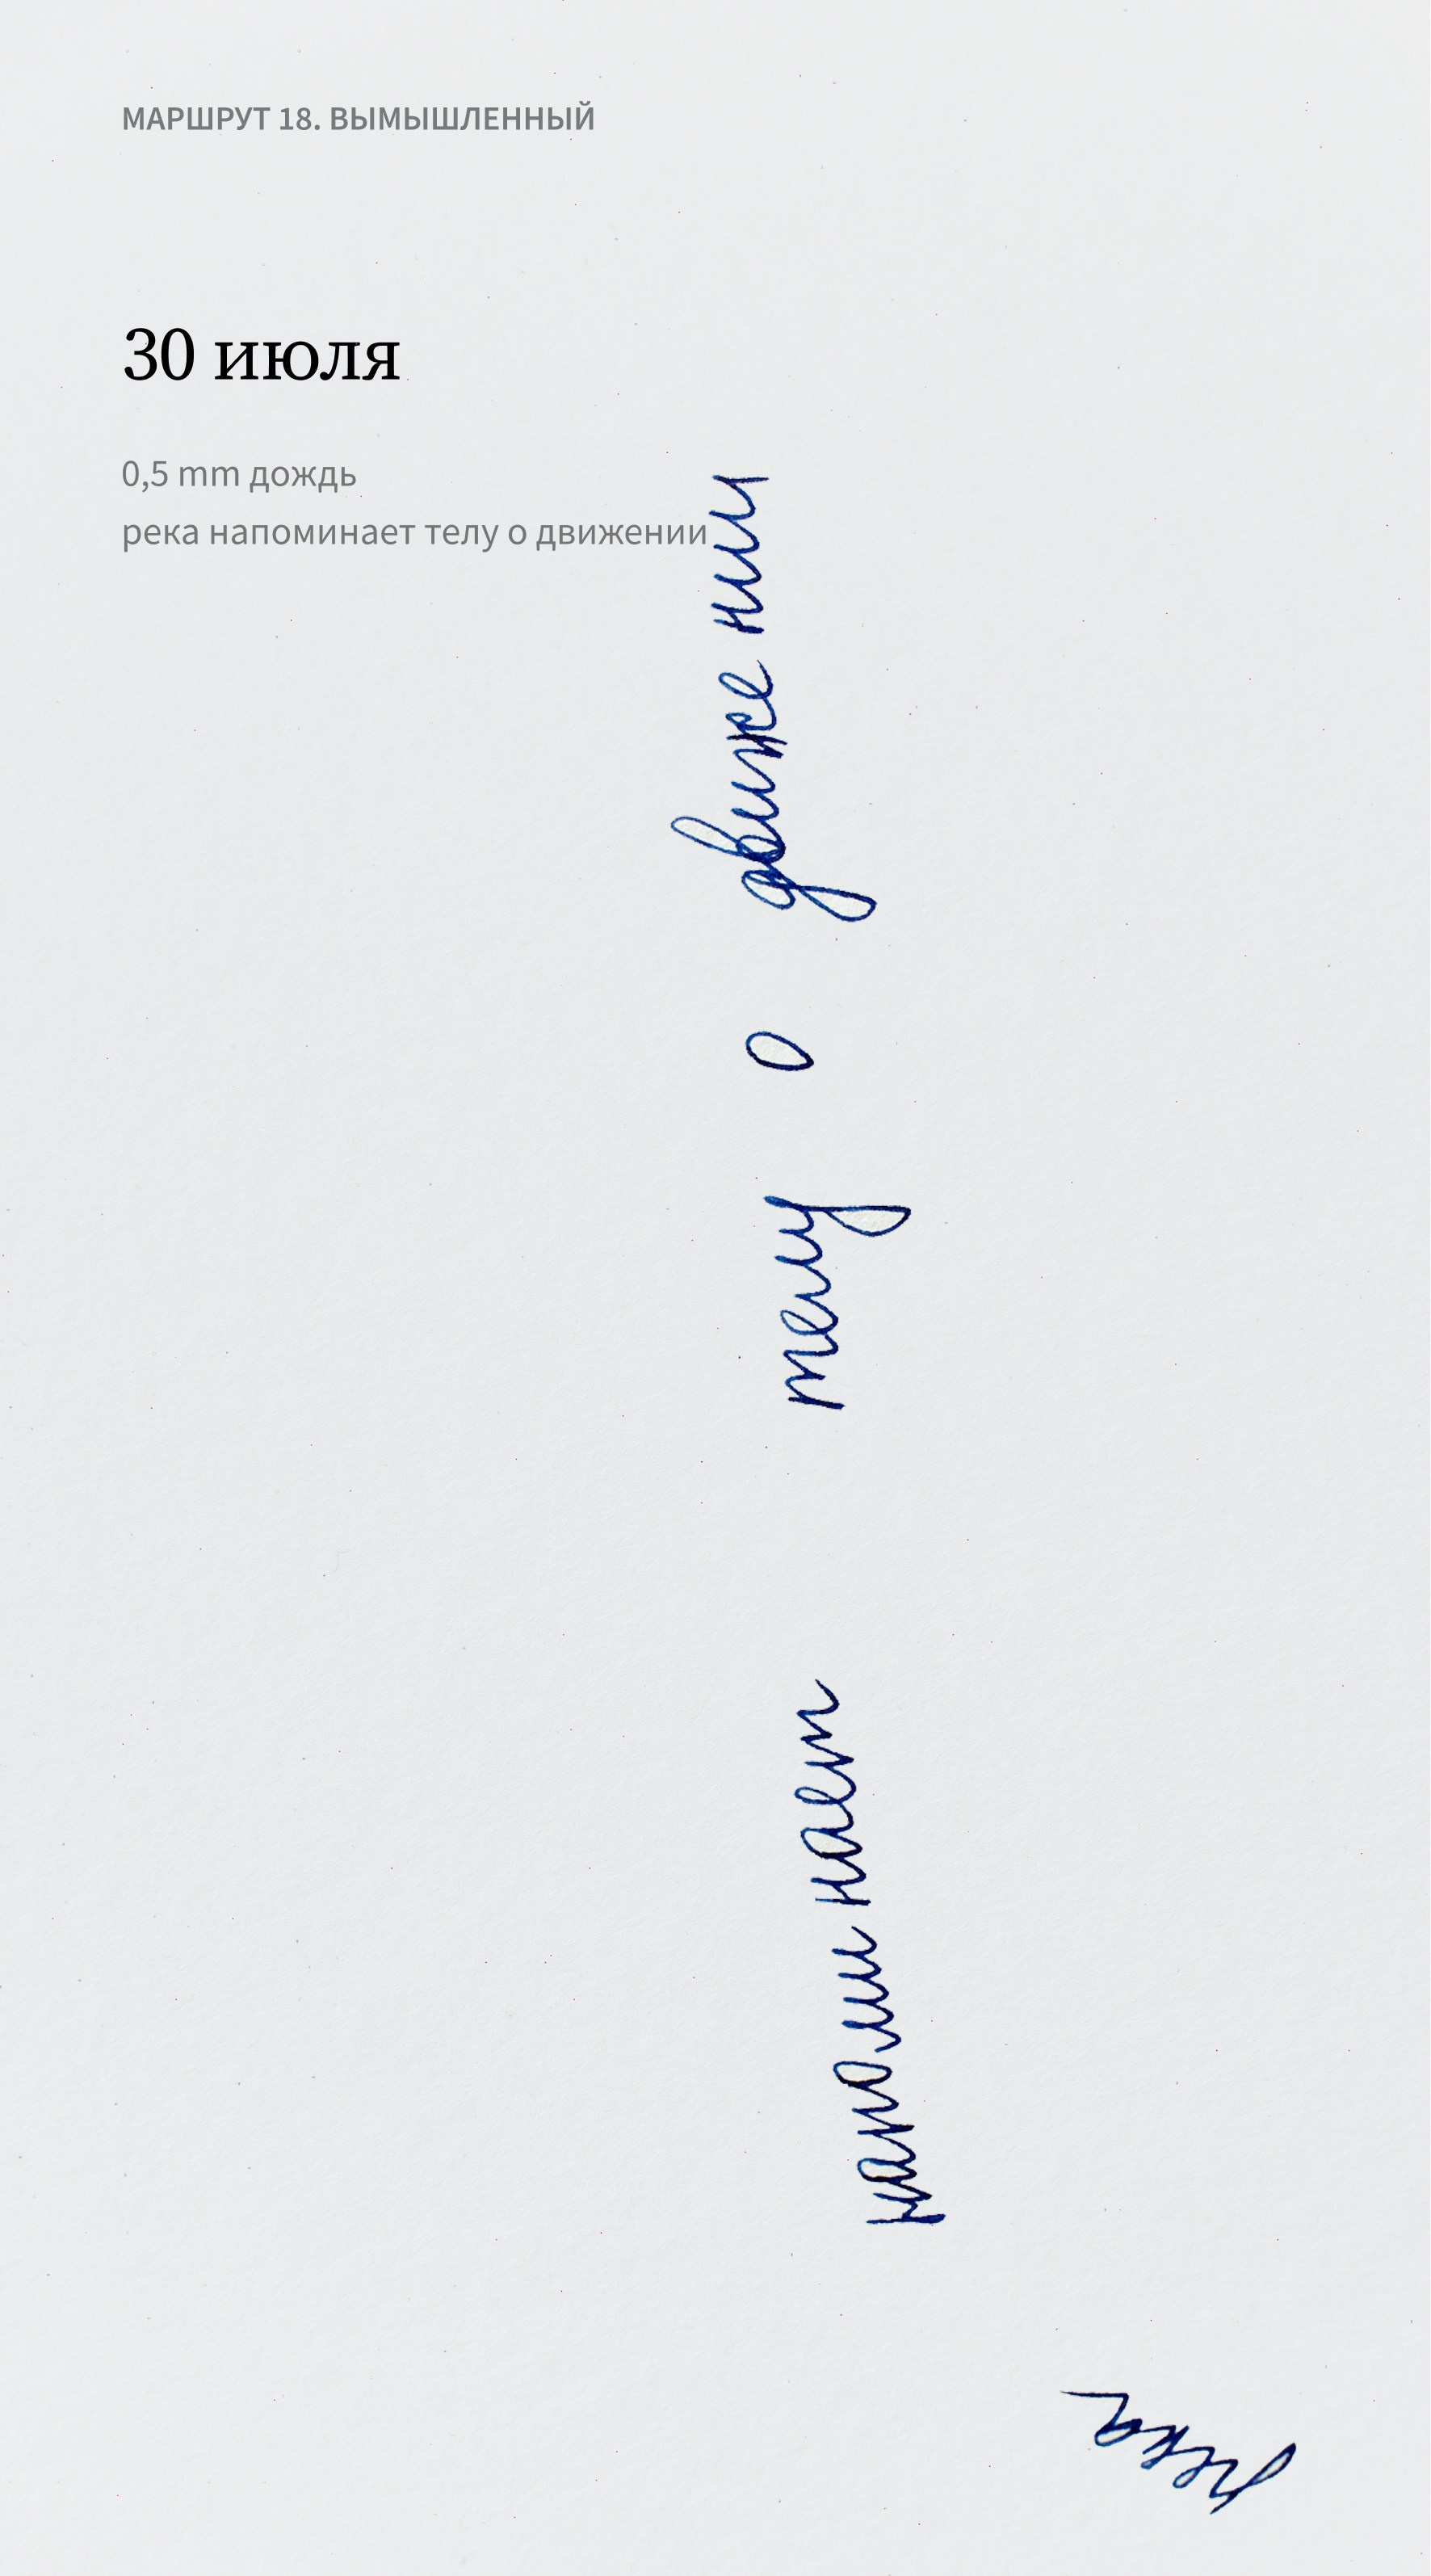 МАРШРУТ 18. ВЫМЫШЛЕННЫЙ
30 июля
0,5 mm дождь
река напоминает телу о движении
река напоминает телу о движении